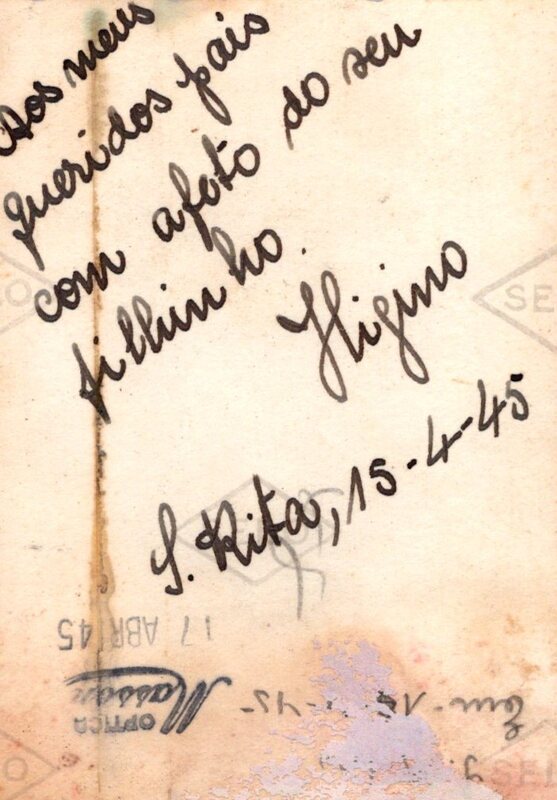 Aos meus
queridos pais
com a foto do seu
filhinho.
Higino
S. Rita, 15-4-45
17 ABR 45
OPTICA
Masson
Em 15 - 45